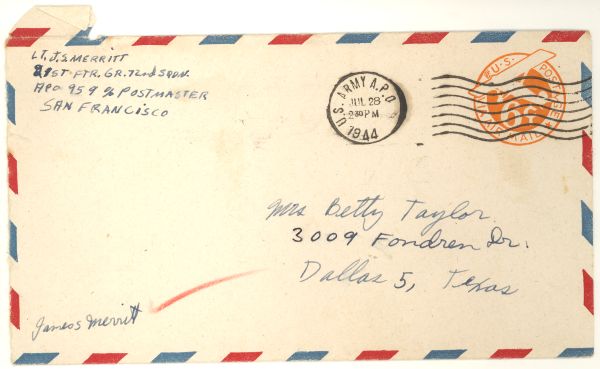 LT. J. S. MERRITT
21ST FTR. GR. 72nd SQDN.
APO 959 % POSTMASTER
SAN FRANCISCO
U.S. ARMY A.P.O.
JUL 28
230PM
1944
U.S. POSTAGE
VIA AIR MAIL
6¢
Mrs Betty Taylor
3009 Fondren Dr.
Dallas 5, Texas
James S Merritt